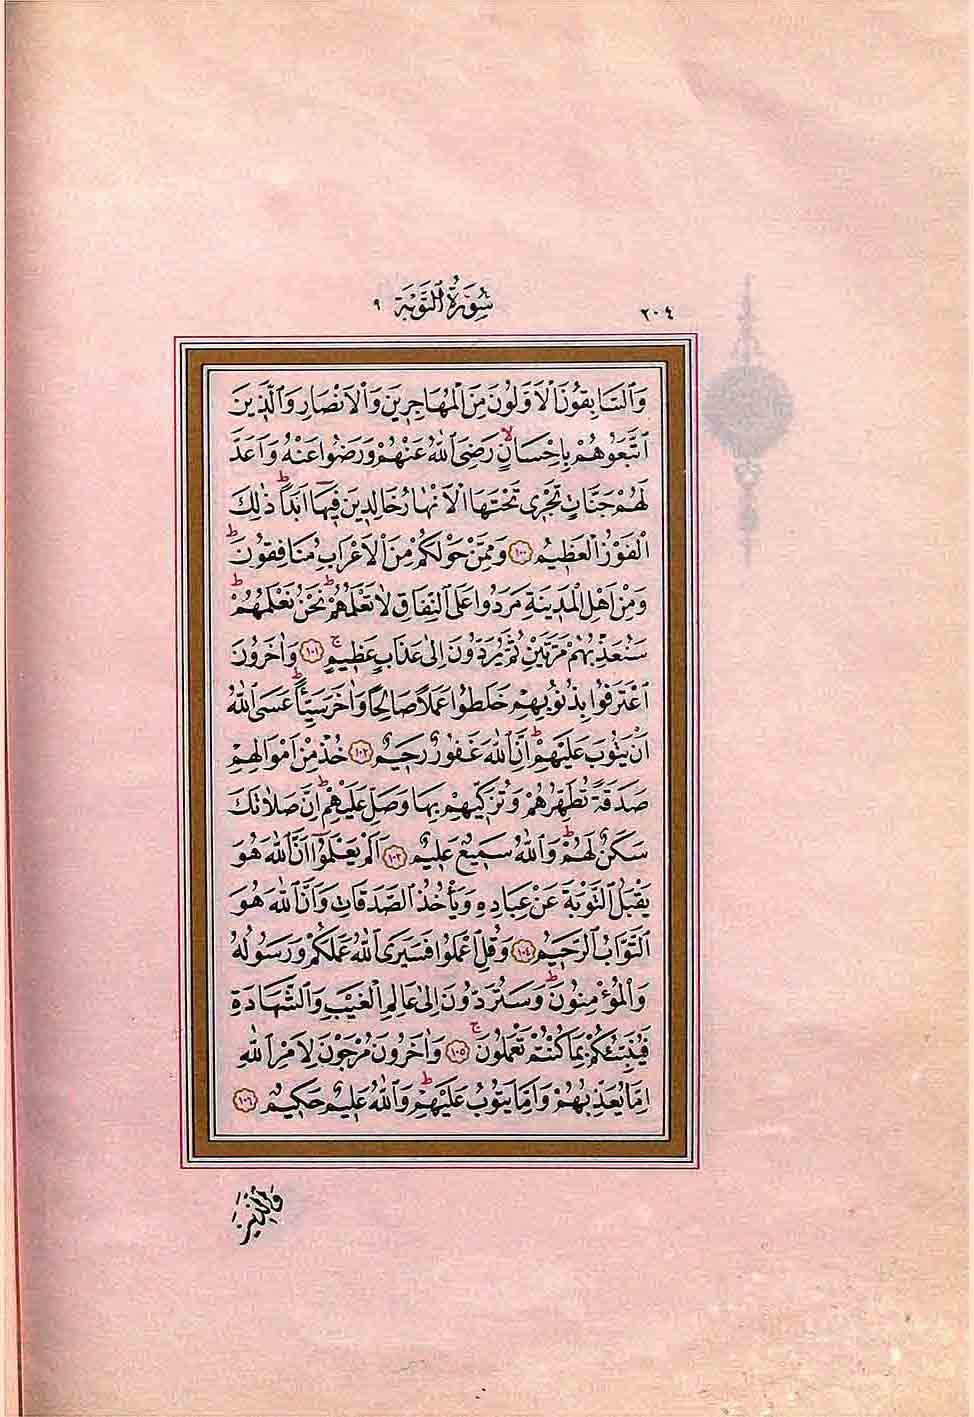 ٢٠٤ سُورَةُ التَّوْبَةِ ٩
وَٱلسَّابِقُونَ ٱلْاَوَّلُونَ مِنَ ٱلْمُهَاجِرِينَ وَٱلْاَنْصَارِ وَٱلَّذِينَ
ٱتَّبَعُوهُمْ بِاِحْسَانٍۙ رَضِىَ ٱللّٰهُ عَنْهُمْ وَرَضُوا عَنْهُ وَاَعَدَّ
لَهُمْ جَنَّاتٍ تَجْرِى تَحْتَهَا ٱلْاَنْهَارُ خَالِدِينَ فِيهَٓا اَبَدًاۜ ذٰلِكَ
ٱلْفَوْزُ ٱلْعَظِيمُ ١٠٠ وَمِمَّنْ حَوْلَكُمْ مِنَ ٱلْاَعْرَابِ مُنَافِقُونَۜ
وَمِنْ اَهْلِ ٱلْمَدِينَةِ مَرَدُوا عَلَى ٱلنِّفَاقِ لَا تَعْلَمُهُمْۜ نَحْنُ نَعْلَمُهُمْۜ
سَنُعَذِّبُهُمْ مَرَّتَيْنِ ثُمَّ يُرَدُّونَ اِلٰى عَذَابٍ عَظِيمٍۚ ١٠١ وَاٰخَرُونَ
ٱعْتَرَفُوا بِذُنُوبِهِمْ خَلَطُوا عَمَلًا صَالِحًا وَاٰخَرَ سَيِّئًاۜ عَسَى ٱللّٰهُ
اَنْ يَتُوبَ عَلَيْهِمْۜ اِنَّ ٱللّٰهَ غَفُورٌ رَحِيمٌ ١٠٢ خُذْ مِنْ اَمْوَالِهِمْ
صَدَقَةً تُطَهِّرُهُمْ وَتُزَكِّيهِمْ بِهَا وَصَلِّ عَلَيْهِمْۜ اِنَّ صَلَاتَكَ
سَكَنٌ لَهُمْۜ وَٱللّٰهُ سَمِيعٌ عَلِيمٌ ١٠٣ اَلَمْ يَعْلَمُٓوا اَنَّ ٱللّٰهَ هُوَ
يَقْبَلُ ٱلتَّوْبَةَ عَنْ عِبَادِهِ وَيَأْخُذُ ٱلصَّدَقَاتِ وَاَنَّ ٱللّٰهَ هُوَ
ٱلتَّوَّابُ ٱلرَّحِيمُ ١٠٤ وَقُلِ ٱعْمَلُوا فَسَيَرَى ٱللّٰهُ عَمَلَكُمْ وَرَسُولُهُ
وَٱلْمُؤْمِنُونَۜ وَسَتُرَدُّونَ اِلٰى عَالِمِ ٱلْغَيْبِ وَٱلشَّهَادَةِ
فَيُنَبِّئُكُمْ بِمَا كُنْتُمْ تَعْمَلُونَۚ ١٠٥ وَاٰخَرُونَ مُرْجَوْنَ لِاَمْرِ ٱللّٰهِ
اِمَّا يُعَذِّبُهُمْ وَاِمَّا يَتُوبُ عَلَيْهِمْۜ وَٱللّٰهُ عَلِيمٌ حَكِيمٌ ١٠٦
وَٱلَّذِينَ